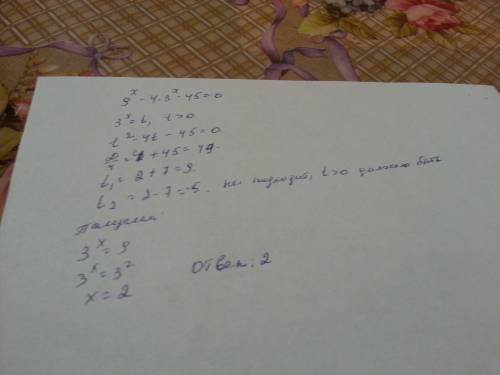 9^x - 4·3^x - 45 = 0
3^x = t, t>0
t^2 - 4t - 45 = 0
D/4 = 4 + 45 = 49.
t₁ = 2 + 7 = 9.
t₂ = 2 - 7 = -5. не подходит, t>0 должно быть
Получим:
3^x = 9
3^x = 3^2
x = 2
Ответ: 2